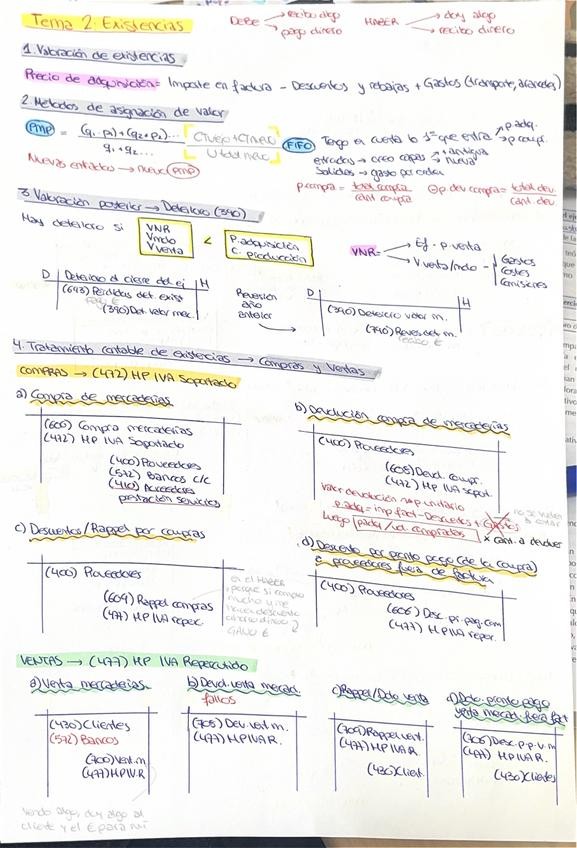 Tema 2: Existencias
DEBE → recibo algo
→ pago dinero
HABER → doy algo
→ recibo dinero
1. Valoración de existencias
Precio de adquisición = Importe en factura - Descuentos y rebajas + Gastos (transporte, aranceles)
2. Métodos de asignación de valor
PMP = (q1·p1)+(q2+p2)...
q1+q2...
CTviejo + CTnuevo
U total
Nuevas entradas → nuevo PMP
FIFO Tengo en cuenta lo 1º que entra → p adq.
→ p compr.
entradas → creo capas → + antigua
→ nueva
Salidas → gasto por orden
p compra = total compra
cant compra
p dev compra = total dev.
cant. dev.
3. Valoración posterior → Deterioro (390)
Hay deterioro si
VNR
Vmdo
Vventa
<
P. adquisición
C. producción
VNR= → Ej. p. venta
→ V.venta/mdo -
Gastos
Costes
Comisiones
D Deterioro al cierre del ej H
(693) Pérdidas det. exist
(390) Det. valor merc.
Reversión
año
anterior
D H
(390) Deterioro valor m.
(790) Rever. det. m.
recibo €
4. Tratamiento contable de existencias → Compras y Ventas
COMPRAS → (472) HP IVA Soportado
a) Compra de mercaderías
(600) Compra mercaderías
(472) HP IVA Soportado
(400) Proveedores
(572) Bancos c/c
(410) Acreedores
prestación servicios
b) Devolución compra de mercaderías
(400) Proveedores
(608) Devol. compr.
(472) HP IVA soport.
Valor devolución → p unitario
p adq = imp fact - Descuentos + Gastos
Luego padq/ud. compradas × cant. a devolver
no se vuelven
a contar
c) Descuentos/Rappel por compras
(400) Proveedores
(609) Rappel compras
(477) HP IVA reper.
en el HABER
porque si compro
mucho y me
hacen descuento
ahorro dinero
GANO €
d) Descuento por pronto pago (de la compra)
a proveedores fuera de factura
(400) Proveedores
(606) Desc. pr. pag. com
(477) HP IVA reper.
VENTAS → (477) HP IVA Repercutido
a) Venta mercaderías
(430) Clientes
(572) Bancos
(700) Vent. m
(477) HP IV.R
Vendo algo, doy algo al
cliente y el € para mí
b) Devol. venta mercad.
fallos
(708) Dev. vent m.
(477) HP IVA R.
c) Rappel/Dcto venta
(709) Rappel vent.
(477) HP IVA R
(430) Client.
d) Dcto. pronto pago
venta mercad. fuera fact
(706) Desc. p.p. v. m
(477) HP IVA R.
(430) Clientes